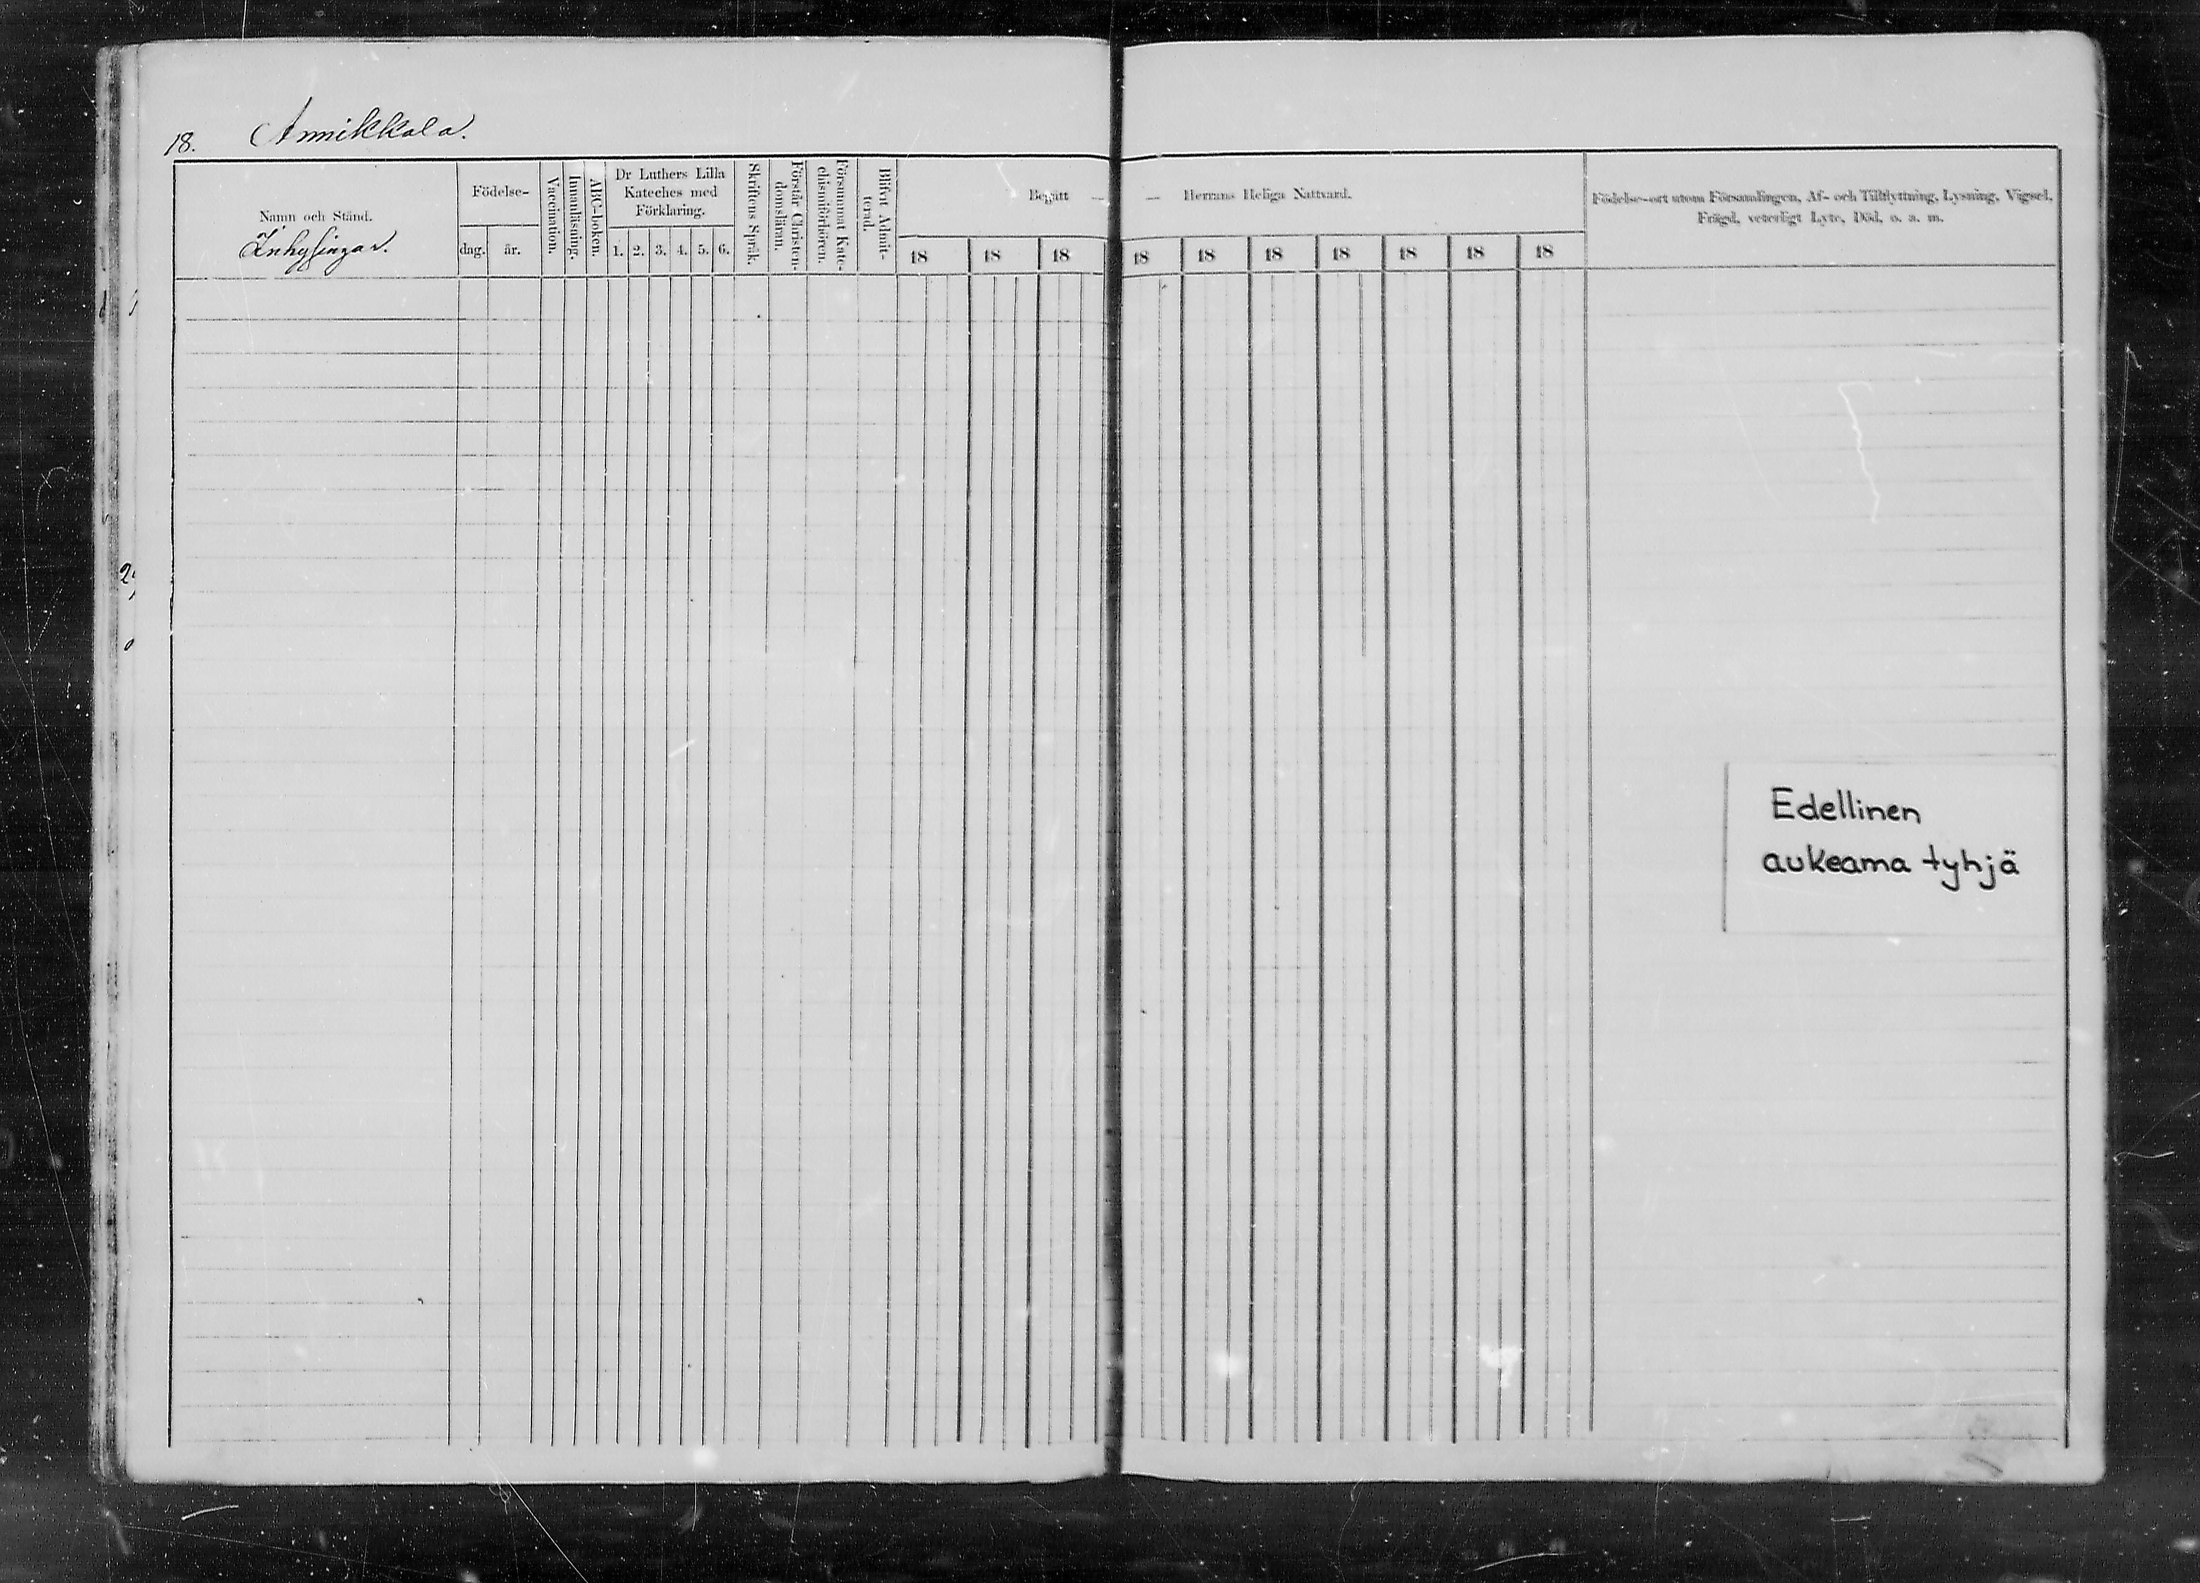 18. Annikkala.
Namn och Stånd.
Inhysingar.
Födelse-
dag.
år.
Vaccination.
Innanläsning.
ABC-boken.
Dr Luthers Lilla
Kateches med
Förklaring.
1. 2. 3. 4. 5. 6.
Skriftens Språk.
Förstår Christen-
domsläran.
Försummat Kate-
chismiförhören.
Blifvit Admit-
terad.
Begått — — Herrans Heliga Nattvard.
18 18 18 18 18 18 18 18 18 18
Födelse-ort utom Församlingen, Af- och Tillflyttning, Lysning, Vigsel,
Frägd, veterligt Lyte, Död, o. a. m.
Edellinen
aukeama tyhjä